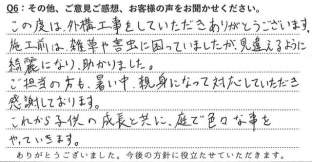 Q6：その他、ご意見ご感想、お客様の声をお聞かせください。
この度は、外構工事をしていただきありがとうございます。
施工前は、雑草や害虫に困っていましたが、見違えるように
綺麗になり、助かりました。
ご担当の方も、暑い中、親身になって対応していただき
感謝しております。
これから子供の成長と共に、庭で色々な事を
やっていきます。
ありがとうございました。今後の方針に役立たせていただきます。